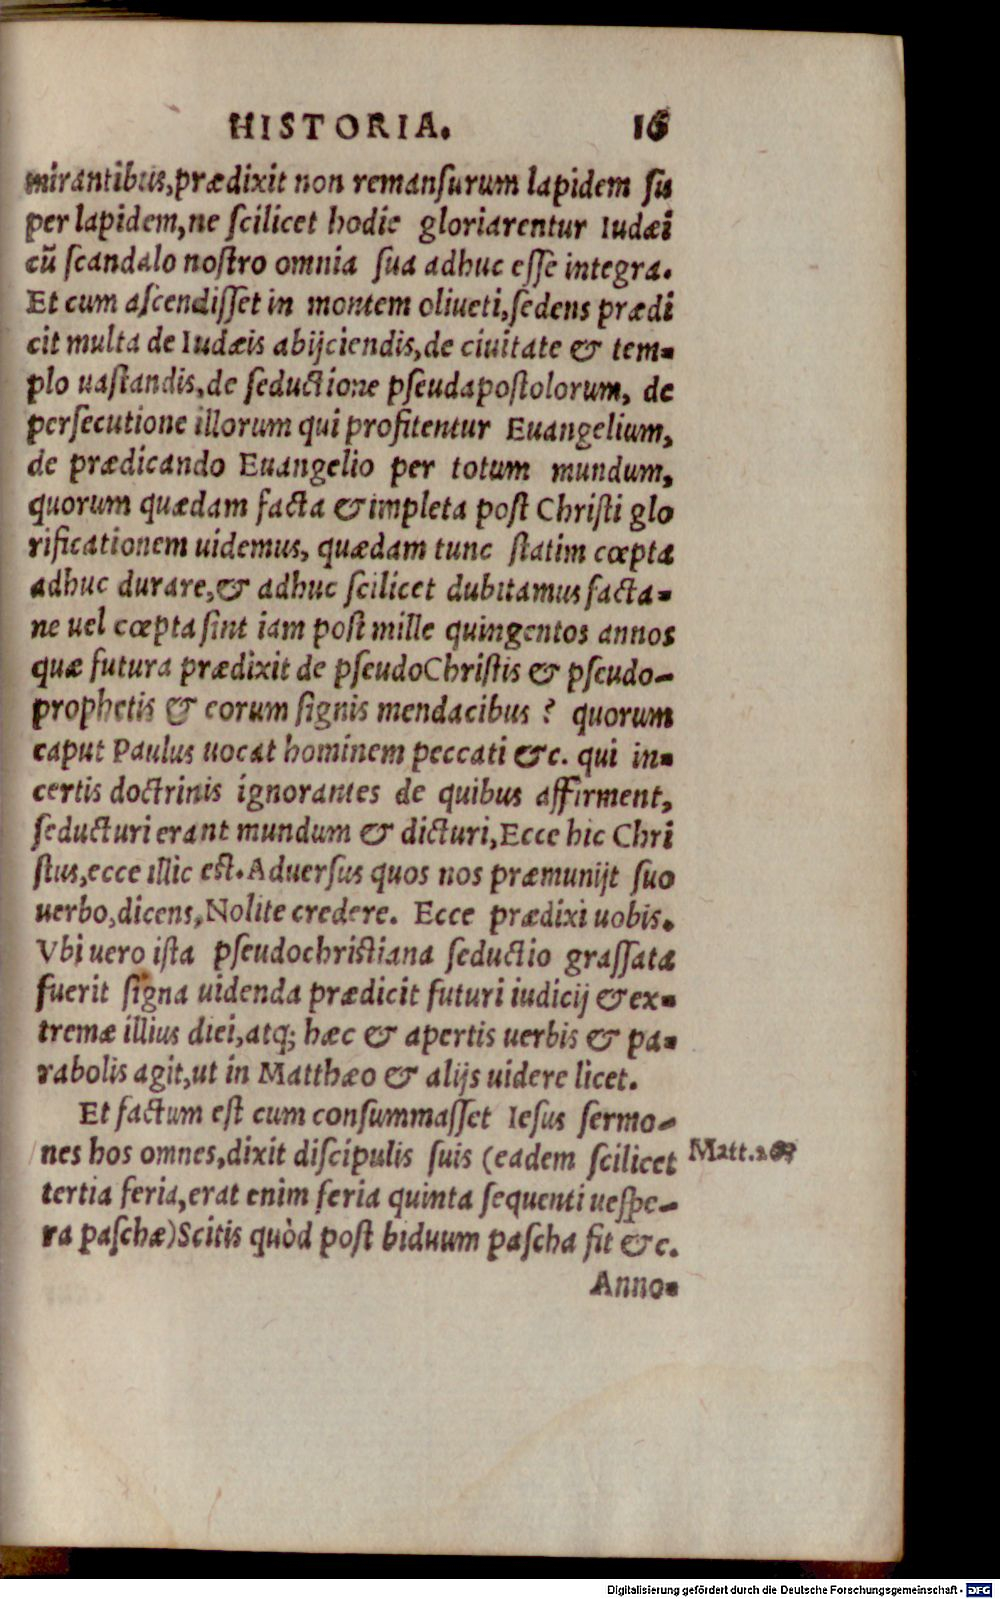 HISTORIA. 16
mirantibus, prædixit non remanſurum lapidem ſu
per lapidem, ne ſcilicet hodie gloriarentur Iudæi
cū ſcandalo noſtro omnia ſua adhuc eſſe integra.
Et cum aſcendiſſet in montem oliueti, ſedens prædi
cit multa de Iudæis abijciendis, de ciuitate & tem-
plo uaſtandis, de ſeductione pſeudapoſtolorum, de
perſecutione illorum qui profitentur Euangelium,
de prædicando Euangelio per totum mundum,
quorum quædam facta & impleta poſt Chriſti glo
rificationem uidemus, quædam tunc ſtatim cœpta
adhuc durare, & adhuc ſcilicet dubitamus facta-
ne uel cœpta ſint iam poſt mille quingentos annos
quæ futura prædixit de pſeudoChriſtis & pſeudo-
prophetis & eorum ſignis mendacibus ? quorum
caput Paulus uocat hominem peccati &c. qui in-
certis doctrinis ignorantes de quibus affirment,
ſeducturi erant mundum & dicturi, Ecce hic Chri
ſtus, ecce illic eſt. Aduerſus quos nos præmunijt ſuo
uerbo, dicens, Nolite credere. Ecce prædixi uobis.
Vbi uero iſta pſeudochriſtiana ſeductio graſſata
fuerit ſigna uidenda prædicit futuri iudicij & ex-
tremæ illius diei, atq; hæc & apertis uerbis & pa-
rabolis agit, ut in Matthæo & alijs uidere licet.
Et factum eſt cum conſummaſſet Ieſus ſermo-
nes hos omnes, dixit diſcipulis ſuis (eadem ſcilicet
Matt.
tertia feria, erat enim feria quinta ſequenti ueſpe-
ra paſchæ) Scitis quòd poſt biduum paſcha fit &c.
Anno-
Digitalisierung gefördert durch die Deutsche Forschungsgemeinschaft - DFG